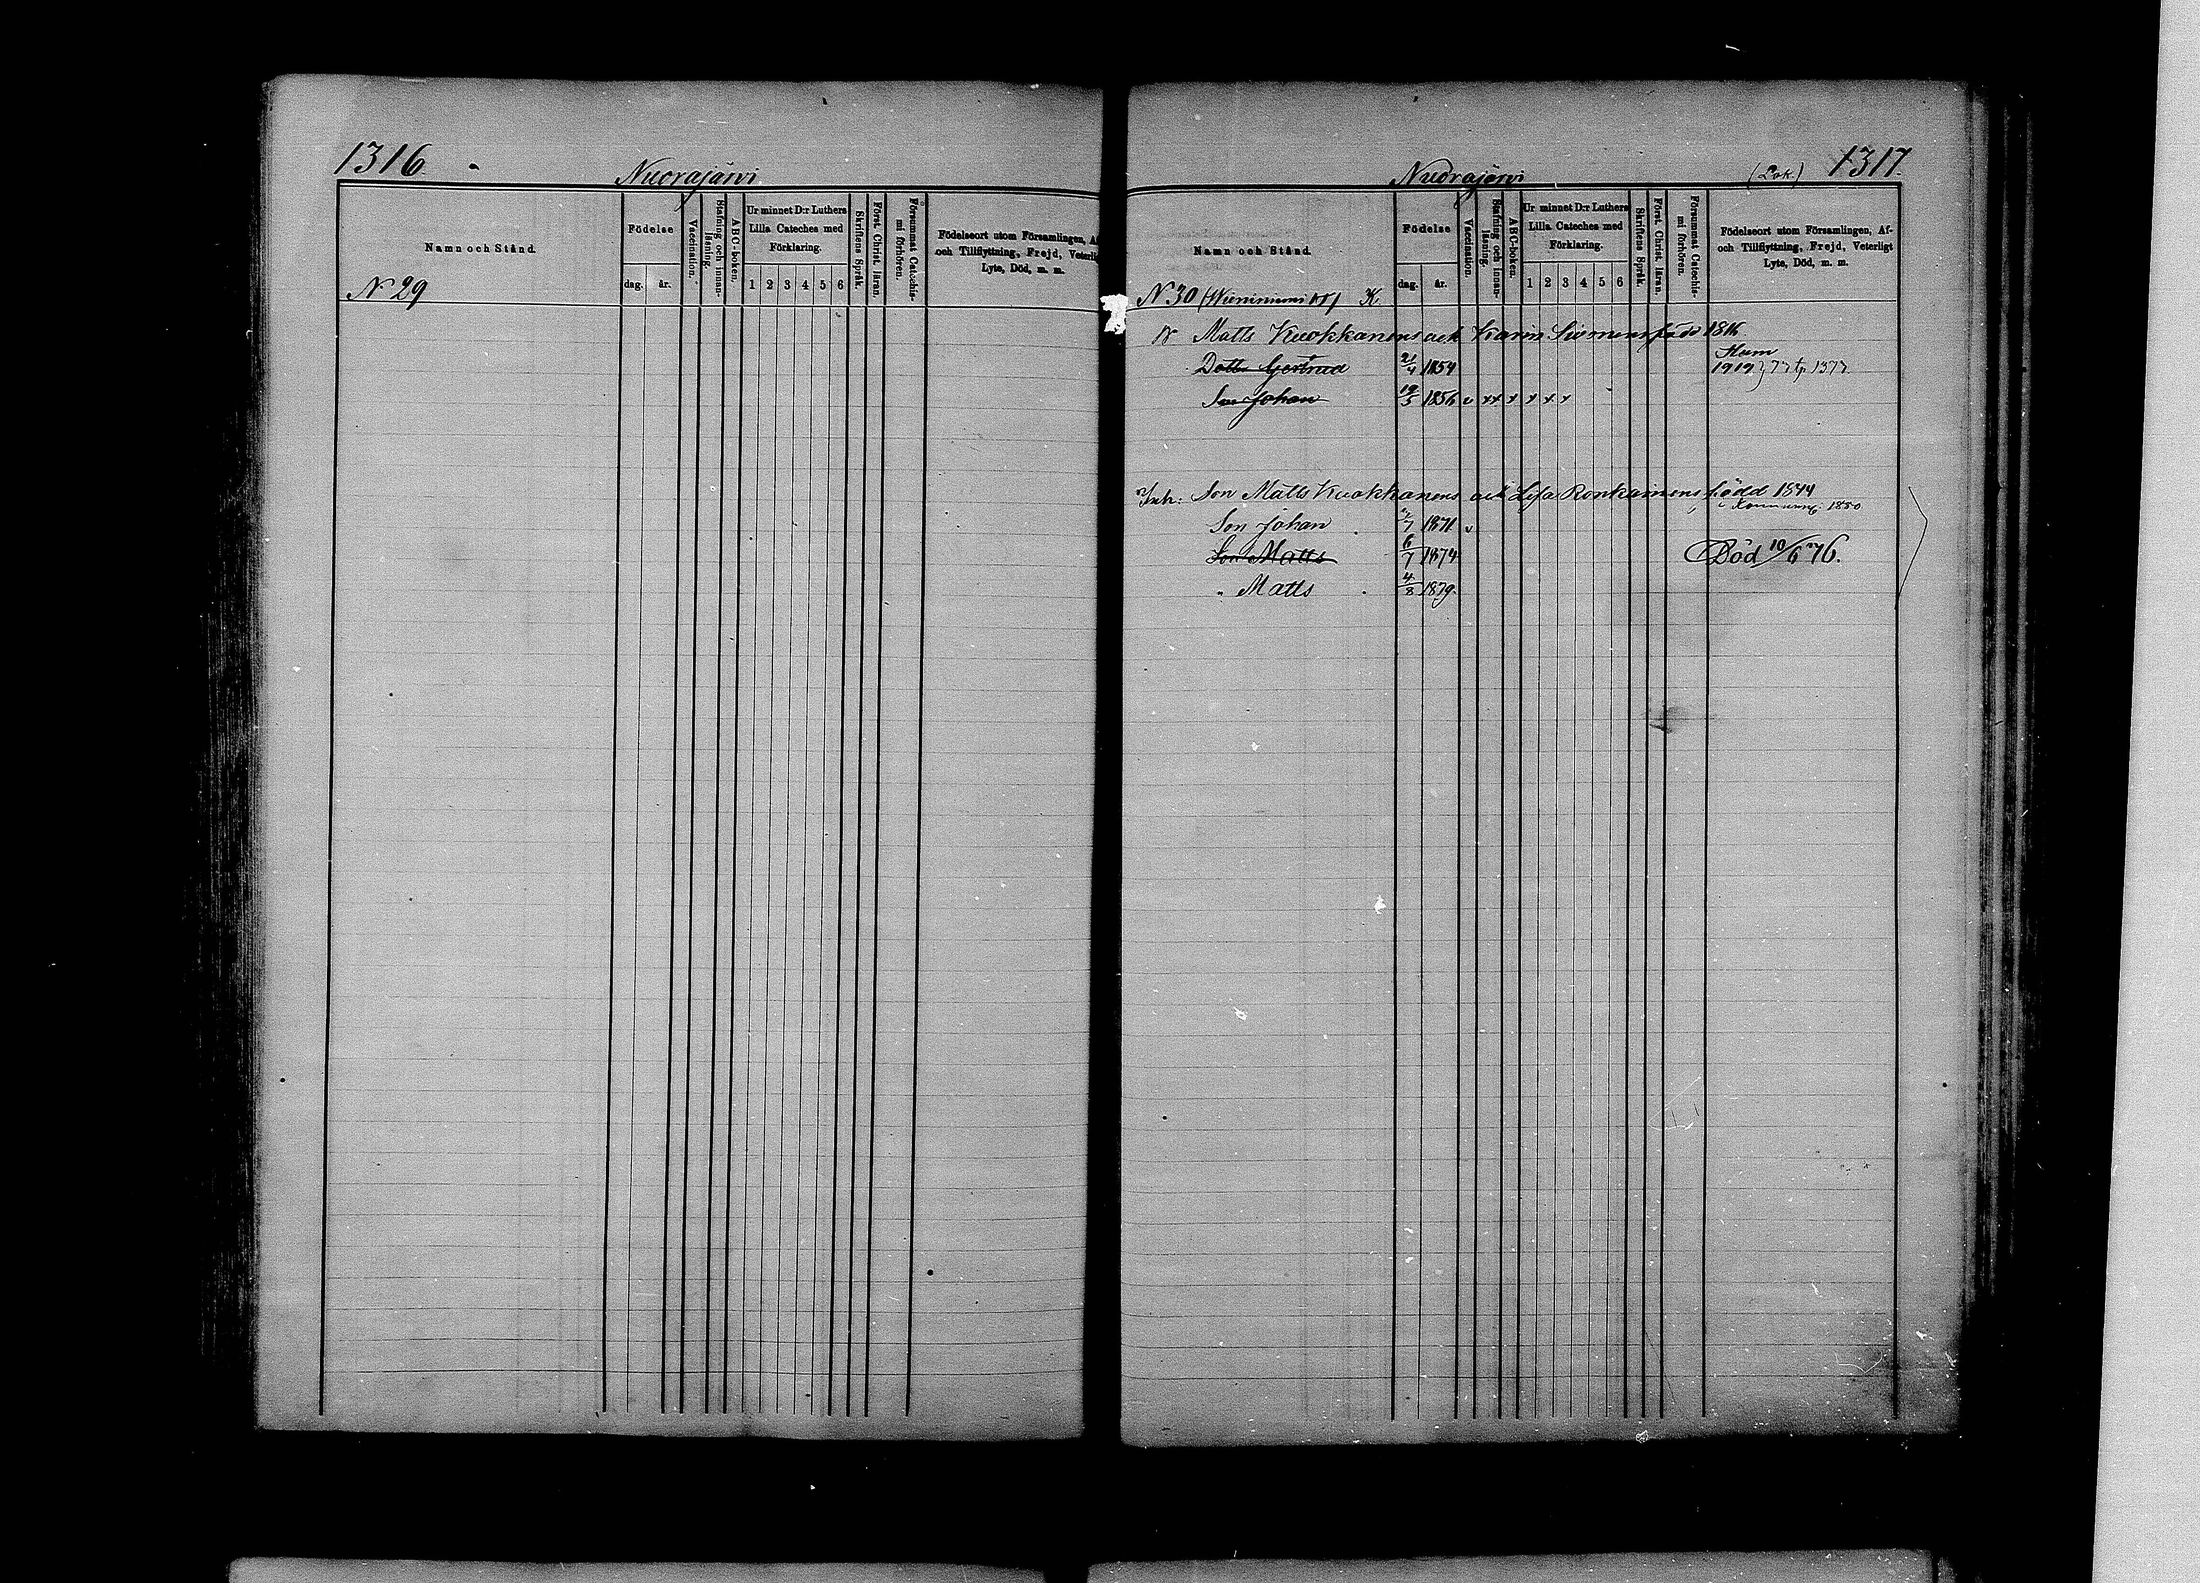 1316
Nuorajärvi
Namn och Stånd.
Födelse
dag. år.
Vaccination.
Stafning och innanläsning.
ABC-boken.
Ur minnet D:r Luthers
Lilla Cateches med
Förklaring.
1 2 3 4 5 6
Skriftens Språk.
Först. Christ. läran.
Försummat Catechismi förhören.
Födelseort utom Församlingen, Af-
och Tillflyttning, Frejd, Veterligt
Lyte, Död, m. m.
N 29
Nuorajärvi
(Lok)
1317.
Namn och Stånd.
Födelse
dag. år.
Vaccination.
Stafning och innanläsning.
ABC-boken.
Ur minnet D:r Luthers
Lilla Cateches med
Förklaring.
1 2 3 4 5 6
Skriftens Språk.
Först. Christ. läran.
Försummat Catechismi förhören.
Födelseort utom Församlingen, Af-
och Tillflyttning, Frejd, Veterligt
Lyte, Död, m. m.
N 30 K
Matts Kuokkanens och Karin född 1816
Dott. Gertrud 21/4 1854
Son Johan 19/5 1856 v x x x x x x
Inh: Son Matts Kuokkanens och Lisa Ronkainens född 1844
1880
Son Johan 1871 v
Son Matts 6/7 1874 Död 10/6 76.
" Matts 4/8 1879.